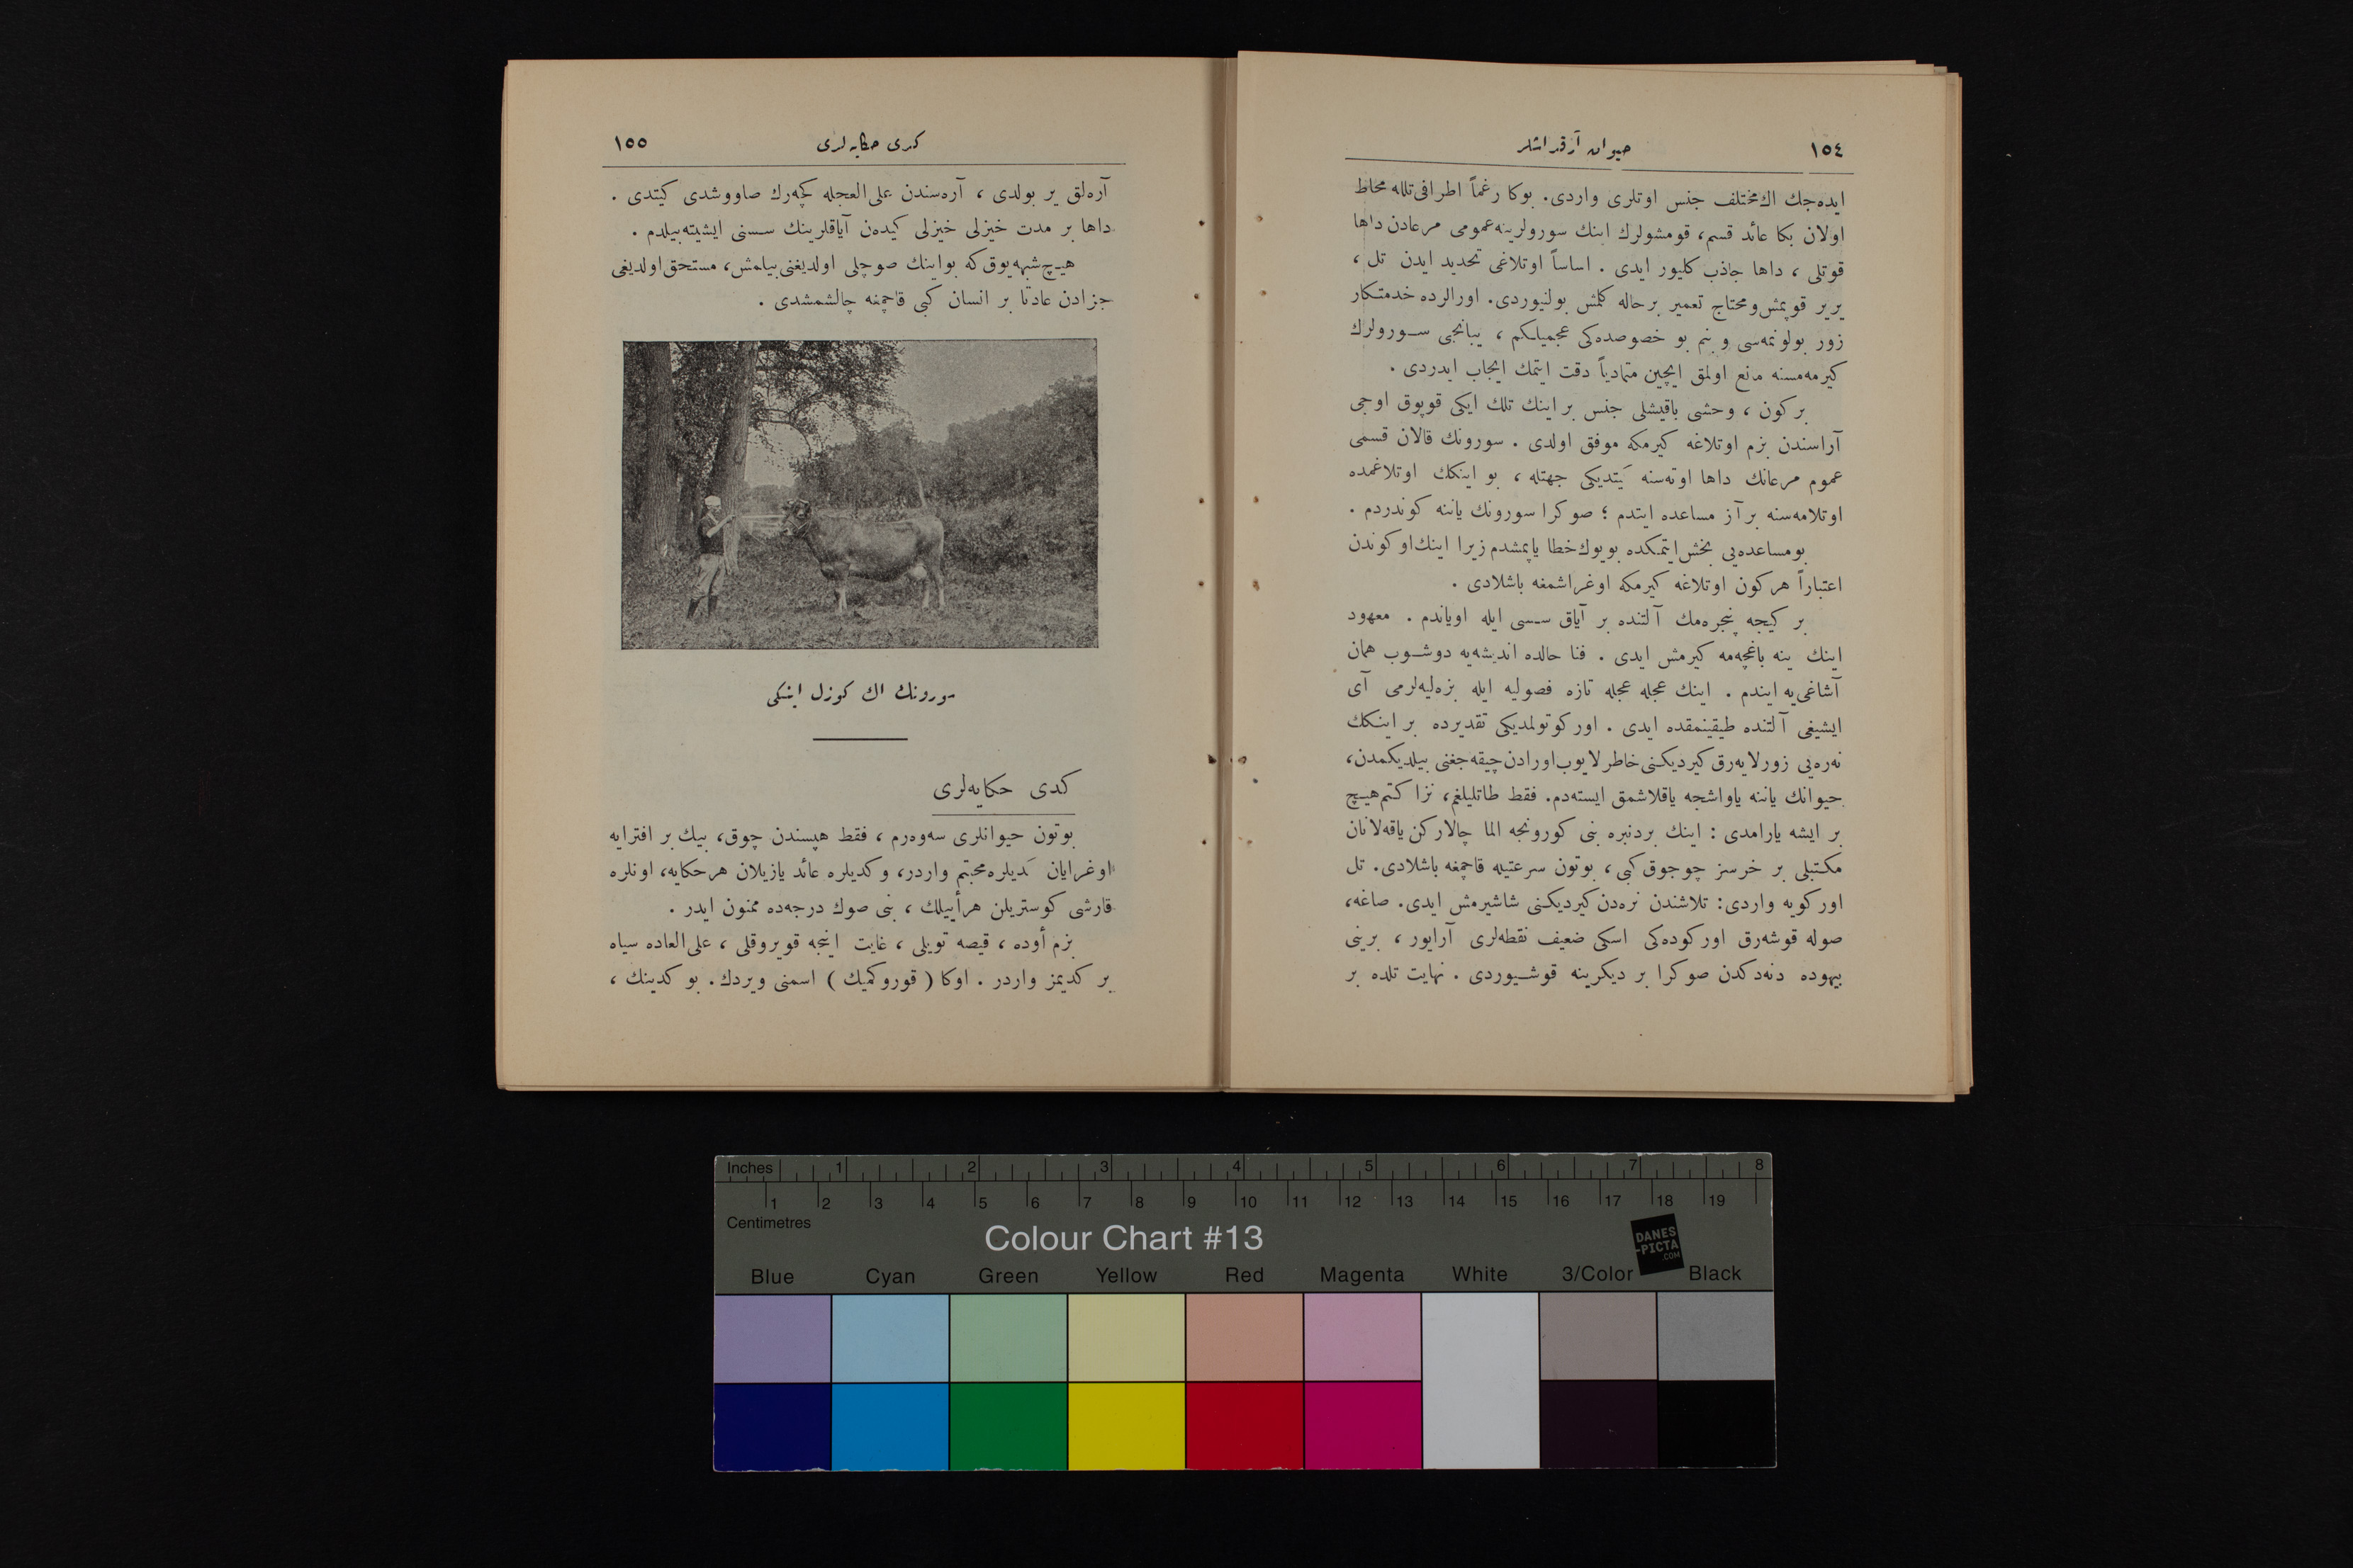 ١٥٤
حيوان آرقداشلر
ايده‌جك اك مختلف جنس اوتلرى واردى. بوكا رغماً اطرافى تلله محاط
اولان بكا عائد قسم، قومشولرك اينك سورولرينه عمومى مرعادن داها
قوتلى ، داها جاذب كليور ايدى . اساساً اوتلاغى تحديد ايدن تل ،
يرير قوپمش و محتاج تعمير بر حاله كلمش بولنيوردى. اورالرده خدمتكار
زور بولونمه‌سى و بنم بو خصوصده‌كى عجميلكم ، يبانجى سورولرك
كيرمه‌مسنه مانع اولمق ايچين متمادياً دقت ايتمك ايجاب ايدردى .
بر كون ، وحشى باقيشلى جنس بر اينك تلك ايكى قوپوق اوجى
آراسندن بزم اوتلاغه كيرمكه موفق اولدى . سورونك قالان قسمى
عموم مرعانك داها اوته‌سنه كيتديكى جهتله ، بو اينكك اوتلاغمده
اوتلامه‌سنه بر آز مساعده ايتدم ؛ صوكرا سورونك ياننه كوندردم .
بو مساعده‌يى بخش ايتمكده بويوك خطا ياپمشدم زيرا اينك او كوندن
اعتباراً هر كون اوتلاغه كيرمكه اوغراشمغه باشلادى .
بر كيجه پنجره‌مك آلتنده بر آياق سسى ايله اوياندم . معهود
اينك ينه باغچه‌مه كيرمش ايدى . فنا حالده انديشه‌يه دوشوب همان
آشاغى‌يه ايندم . اينك عجله عجله تازه فصوليه ايله بزه‌ليه‌لرمى آى
ايشيغى آلتنده طيقينمقده ايدى . اوركوتولمديكى تقديرده بر اينكك
نه‌ره‌يى زورلايه‌رق كيرديكنى خاطرلايوب اورادن چيقه‌جغنى بيلديكمدن،
حيوانك ياننه ياواشجه ياقلاشمق ايسته‌دم. فقط طاتليلغم، نزاكتم هيچ
بر ايشه يارامدى : اينك بردنبره بنى كورونجه الما چالاركن ياقه‌لانان
مكتبلى بر خرسز چوجوق كبى ، بوتون سرعتيله قاچمغه باشلادى. تل
اوركويه واردى: تلاشندن نره‌دن كيرديكنى شاشيرمش ايدى. صاغه،
صوله قوشه‌رق اوركوده‌كى اسكى ضعيف نقطه‌لرى آرايور ، برينى
بيهوده دنه‌دكدن صوكرا بر ديكرينه قوشيوردى . نهايت تلده بر
١٥٥
كدى حكايه‌لرى
آره‌لق ير بولدى ، آره‌سندن على العجله كچه‌رك صاووشدى كيتدى .
داها بر مدت خيزلى خيزلى كيده‌ن آياقلرينك سسنى ايشيته‌بيلدم .
هيچ شبهه يوق كه بو اينك صوچلى اولديغنى بيلمش، مستحق اولديغى
جزادن عادتا بر انسان كبى قاچمغه چالشمشدى .
سورونك اك كوزل اينكى
كدى حكايه‌لرى
بوتون حيوانلرى سه‌وه‌رم ، فقط هپسندن چوق، بيك بر افترايه
اوغرايان كديلره محبتم واردر، و كديلره عائد يازيلان هر حكايه، اونلره
قارشى كوستريلن هر أييلك ، بنى صوك درجه‌ده ممنون ايدر .
بزم أوده ، قيصه تويلى ، غايت اينجه قويروقلى ، على العاده سياه
بر كديمز واردر . اوكا ( قوروكميك ) اسمنى ويردك. بو كدينك ،
Inches 1 2 3 4 5 6 7 8
1 2 3 4 5 6 7 8 9 10 11 12 13 14 15 16 17 18 19
Centimetres
Colour Chart #13
DANES
-PICTA
.COM
Blue Cyan Green Yellow Red Magenta White 3/Color Black